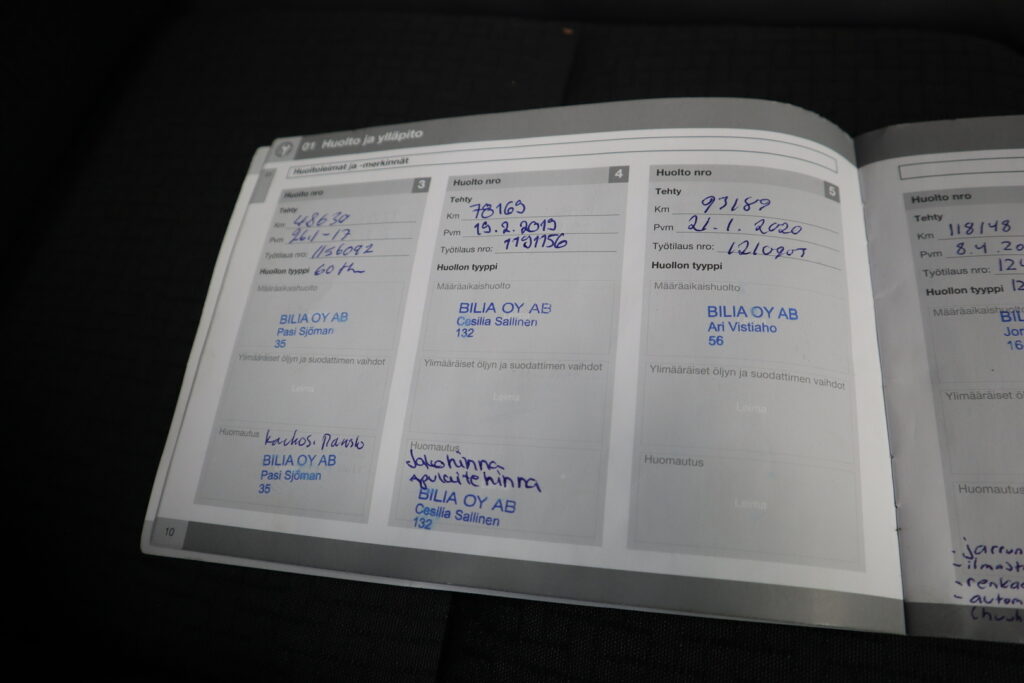 01 Huolto ja ylläpito
Huoltoleimat ja -merkinnät
Huolto nro 3
Tehty
Km 48630
Pvm 26.1-17
Työtilaus nro: 1156092
Huollon tyyppi 60 tkm
Määräaikaishuolto
BILIA OY AB
Pasi Sjöman
35
Ylimääräiset öljyn ja suodattimen vaihdot
Leima
Huomautus
BILIA OY AB
Pasi Sjöman
35
10
Huolto nro 4
Tehty
Km 78169
Pvm 19.2.2019
Työtilaus nro: 1191156
Huollon tyyppi
Määräaikaishuolto
BILIA OY AB
Cesilia Sallinen
132
Ylimääräiset öljyn ja suodattimen vaihdot
Leima
Huomautus
Jakohinna
Apulaitehinna
BILIA OY AB
Cesilia Sallinen
132
Huolto nro 5
Tehty
Km 93189
Pvm 21.1.2020
Työtilaus nro:
Huollon tyyppi
Määräaikaishuolto
BILIA OY AB
Ari Vistiaho
56
Ylimääräiset öljyn ja suodattimen vaihdot
Leima
Huomautus
Leima
Huolto nro
Tehty
Km 118148
Pvm 8.4.20
Työtilaus nro: 12
Huollon tyyppi 12
Määräaikaishuolto
BIL
Jor
16
Ylimääräiset öl
Huomautus
- jarrun
- ilmast
- renka
- autom